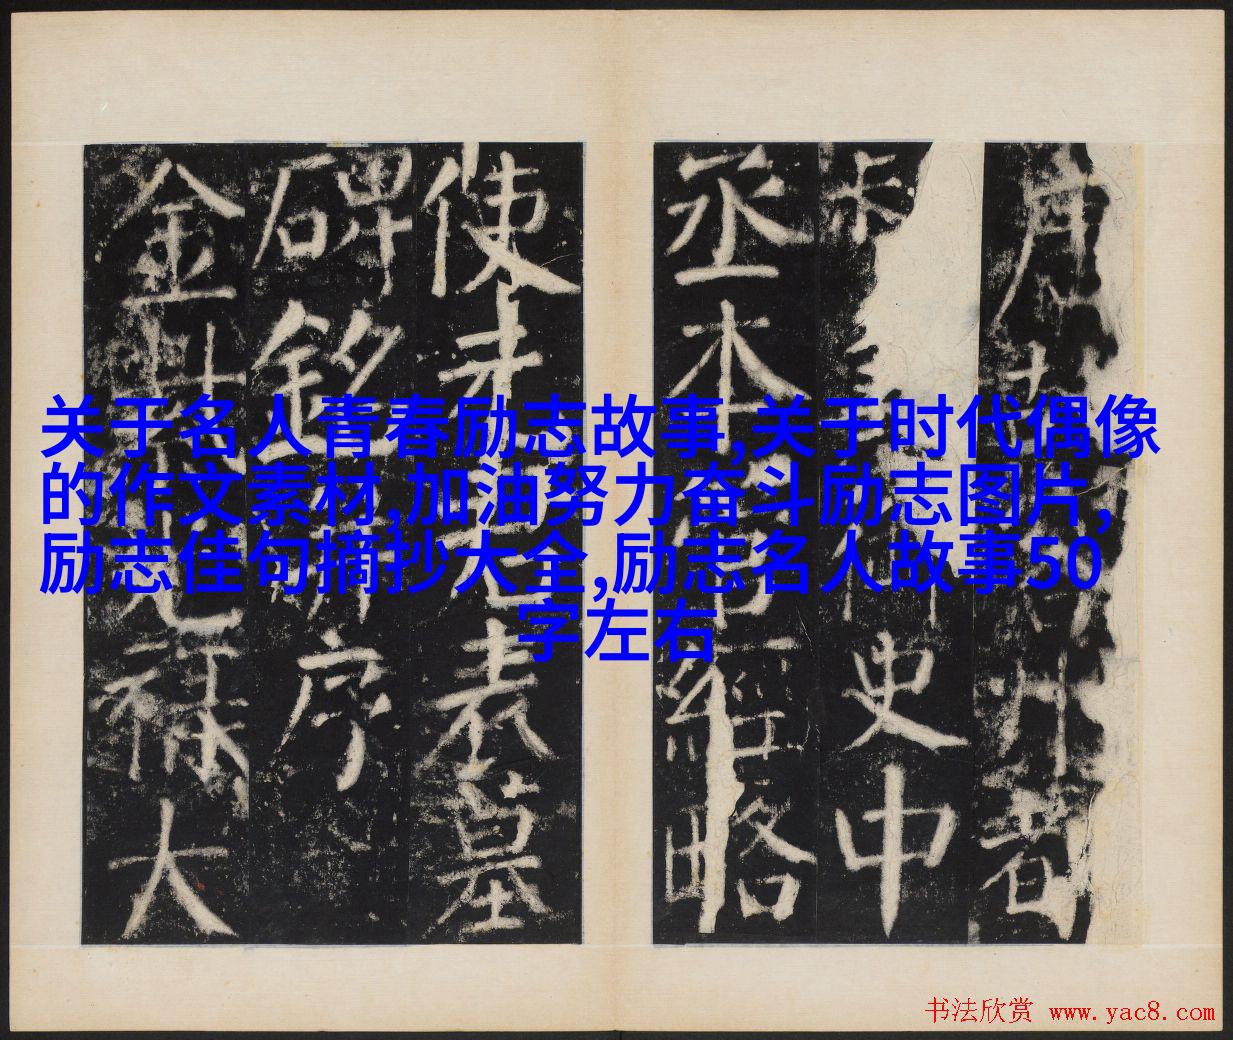 关于名人青春励志故事,关于时代偶像
的作文素材,加油努力奋斗励志图片,
励志佳句摘抄大全,励志名人故事50
字左右
州都
史中
丞本經略
使表墓
碑銘序
金祿大
书法欣赏 www.yac8.com